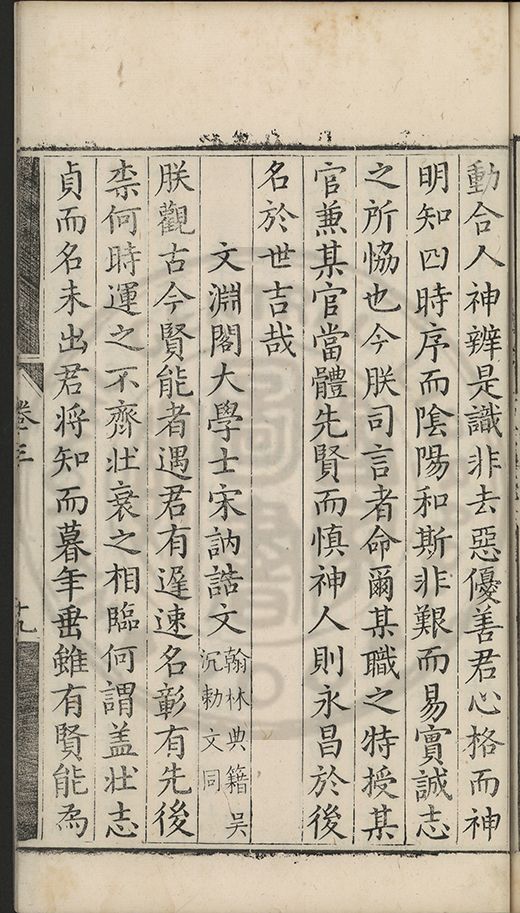 動合人神辨是識非去惡優善君心格而神
明知四時序而陰陽和斯非艱而易實誠志
之所恊也今朕司言者命爾某職之特授某
官兼某官當體先賢而慎神人則永昌於後
名於世吉哉
文淵閣大學士宋訥誥文翰林典籍吴
沉勅文同
朕觀古今賢能者遇君有遅速名彰有先後
柰何時運之不齊壯衰之相臨何謂盖壯志
貞而名未出君将知而暮年垂雖有賢能為
卷三
十九